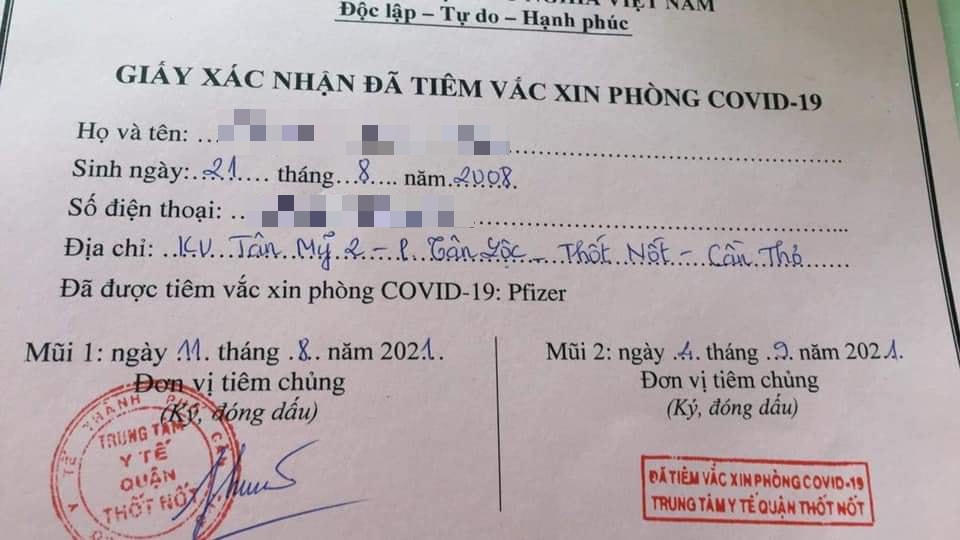 NGHĨA VIỆT NAM
Độc lập – Tự do – Hạnh phúc
GIẤY XÁC NHẬN ĐÃ TIÊM VẮC XIN PHÒNG COVID-19
Họ và tên: ...
Sinh ngày:..21.... tháng..8.... năm.2008.
Số điện thoại: ..
Địa chỉ: ..KV. Tân Mỹ 2 – P. Tân Lộc – Thốt Nốt – Cần Thơ
Đã được tiêm vắc xin phòng COVID-19: Pfizer
Mũi 1: ngày .11. tháng .8.. năm 2021.
Đơn vị tiêm chủng
(Ký, đóng dấu)
Y TẾ THÀNH PHỐ
TRUNG TÂM
Y TẾ
QUẬN
THỐT NỐT
Mũi 2: ngày .4. tháng .9. năm 2021.
Đơn vị tiêm chủng
(Ký, đóng dấu)
ĐÃ TIÊM VẮC XIN PHÒNG COVID-19
TRUNG TÂM Y TẾ QUẬN THỐT NỐT